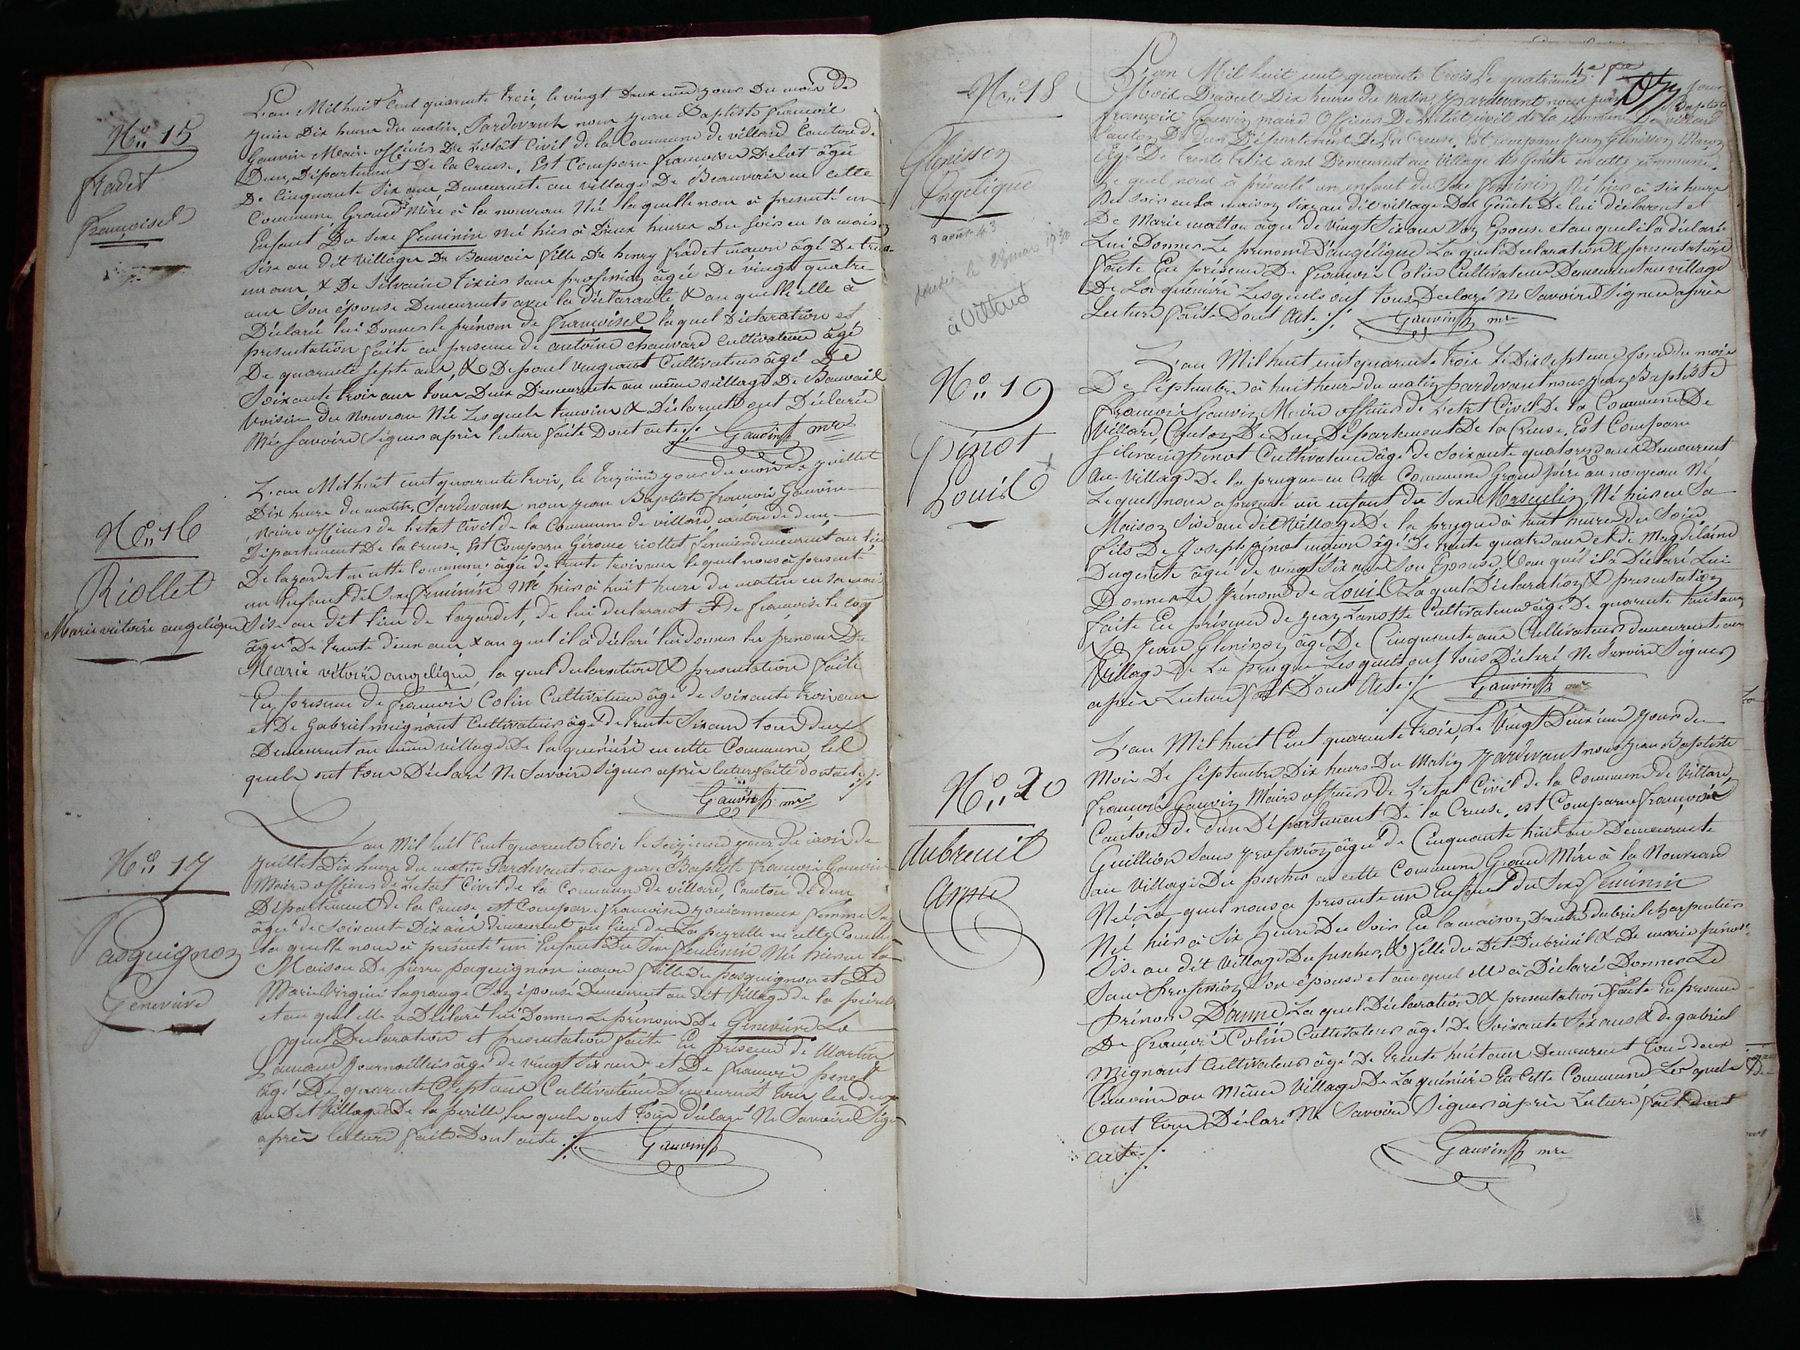 N° 15
fradet
françoisel
L'an Mil huit Cent quarante trois, le vingt deuxième jour du mois de
juin Dix heures du matin, Pardevant nous jean Baptiste françois
Gauvin Maire officier De l'état Civil de la Commune de villard Canton de
Dun, Département De la Creuse. Est Comparu françoise Delot âgée
De Cinquante Six ans Demeurante au village De Beauvais en cette
Commune Grand Mère à la nouveau Né laquelle nous à presenté un
Enfant Du Sexe feminin Né hier à Deux heures Du Soir en sa maison
Sise au dit village De Bauvais fille De henry fradet maçon âgé De trente
un ans & De Silvaine tixier sans profession âgée De vingt quatre
ans Son épouse Demeurants avec la déclarante & au quelle elle à
Déclaré lui Donner le prénom de françoisel, la quel Déclaration et
présentation faite en presence de antoine chauvard Cultivateur âgé
De quarante Septe ans, & De paul Cultivateur âgé De
Soixante trois ans tous Deux Demeurants au même village De Bauvais
Voisin du Nouveau Née Lesquels temoins & Déclarante ont Déclaré
Née Savoire Signer après lecture faite Dont acte ./.
Gauvin mre
N° 16
Riollet
Marie vitoire angelique
L'an Mil huit cent quarante trois, le treizième jour du mois de juillet
Dix heures du matin, Pardevant nous jean Baptiste françois Gauvin
Maire officier de l'état Civil de la Commune de villard, canton de dun,
Département De la Creuse, Est Comparu Gérome riollet fermier demeurant au lieu
De lazardet en cette Commune âgé de trente trois ans le quel nous à presenté
un Enfant du Sexe feminin Né hier à huit heures du matin en sa maison
Sise au dit lieu de lazardet, de lui declarant et de françoise le coq
âgée De trente deux ans & au quel il à déclaré lui donner les prénoms De
Marie vitoire angelique, la quel declaration & presentation faite
En presence de françois Colin Cultivateur âgé de soixante trois ans
et De Gabriel meignant Cultivateur âgé De trente Six ans tous deux
Demeurant au même village De la quérière en cette Commune les
quels ont tous Déclaré Ne Savoire Signer après lecture faite dont acte ./.
Gauvin mre
N° 17
Pasquignon
Genevieve
L'an Mil huit Cent quarante trois le Seizieme jour du mois de
juillet Dix heures du matin Pardevant nous jean Baptiste françois Gauvin
Maire officier de l'état Civil de la Commune de villard, Canton de dun
Département de la Creuse est Comparu françoise femme
âgée de Soixante Dix ans demeurant au lieu De La peyrelle en cette Commune
la quelle nous à presenté un Enfant Du Sexe feminin Né hier en la
Maison De pierre pasquignon maçon fille du pasquignon et De
Marie Virginie lagrange Son épouse Demeurant au dit village de la
et au quel elle à Déclaré lui Donner le prénom De Genevieve La
quel Déclaration et presentation faite En présence de Martin
Lamand journaillier âgé de vingt Six ans et De françois pinot
âgé De quarante Sept ans Cultivateur Demeurant tous les deux
au Dit village De la les quels ont tous déclaré Ne Savoire Signer
après lecture faite Dont acte ./.
Gauvin
4e f
N° 18
Glenisson
Angélique
3 août 43
décédée le 23 mars 1930
à Villard
L'an Mil huit cent quarante trois le quatrieme jour
Mois D'aout Dix heures du matin, Pardevant nous jean Baptiste
françois Gauvin maire officier De l'état civil de la Commune de villard
Canton De dun, Département De la Creuse. Est comparu jean Glenisson Maçon
âgé De trente ans Demeurant au village Du Genête en cette Commune.
Le quel nous à présenté un enfant du Sexe feminin Né hier à six heures
Du soir en sa maison Sise au dit village Du Genête De lui Déclarant et
De Marie matton âgée de vingt Six ans Son Epouse et au quel il à déclaré
Lui Donner Le prénom D'angélique La quel Déclaration & présentation
faite En présence De françois Colin Cultivateur Demeurant au village
De La quérière Lesquels ont tous Declaré Ne Savoire Signer après
Lecture faite Dont Acte ./.
Gauvin mre
N° 19
pinot
Louis
L'an Mil huit cent quarante trois le Dix septieme jour du mois
De Septembre à huit heures du matin pardevant nous jean Baptiste
françois Gauvin Maire officier de L'état Civil De la Commune De
Villard, Canton De Dun, Département De la Creuse. Est Comparu
Silvain pinot Cultivateur âgé de Soixante quatorze ans Demeurant
au village De la prugne en Cette Commune Grand père au nouveau Né
Lequel nous a presenté un enfant du Sexe Masculin Né hier en Sa
Maison Sise au dit village De la prugne à huit heures du Soir
fils De Joseph pinot maçon âgé De trente quatre ans et de Magdelaine
Dugenete âgée de vingt Six ans Son Epouse & au quel il a Déclaré Lui
Donner Le prénom de Louis La quel Déclaration & présentation
faite En présence de jean Lanotte Cultivateur âgé De quarante huit ans
& De jean Glenison âgé De Cinquante ans Cultivateurs demeurants au
Village De La prugne Lesquels ont tous Déclaré Ne Savoire Signer
après Lecture fait Dont Acte ./.
Gauvin mre
N° 20
dubreuil
anne
L'an Mil huit Cent quarante trois, Le Vingt Deuxième jour du
Mois De Septembre Dix heures Du Matin Pardevant nous jean Baptiste
françois Gauvin Maire officier de L'état Civil de la Commune de Villard
Canton De dun Département de la Creuse. est Comparue françoise
Guillion Sans profession âgée de Cinquante huit ans Demeurante
au Village Du puscher en cette Commune Grand Mère à la Nouveau
Né, La quel nous a presenté un Enfant du Sexe feminin
Né hier à Six heures Du Soir En la maison dubrieil Charpentier
Sise au dit Village Du puscher, & fille du Dit Dubrieuil & De marie
Sans Profession Son épouse et au quel elle à Déclaré Donner Le
Prénom D'anne La quel Déclaration & présentation faite En presence
De françois Colin Cultivateur âgé De Soixante Six ans & de gabriel
Mignant Cultivateur âgé De trente huit ans Demeurant tous deux
Cousin au Même Village De La quérière En Cette Commune Les quels
Ont tous Déclaré Ne Savoire Signer après Lecture fait dont
acte ./.
Gauvin mre